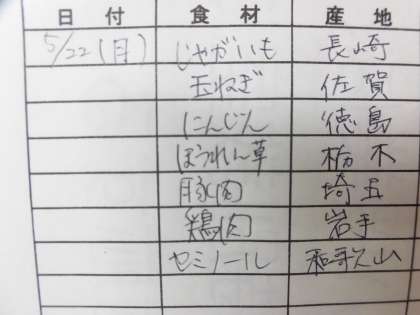 日付 食材 産地
5/22(月) じゃがいも 長崎
玉ねぎ 佐賀
にんじん 徳島
ほうれん草 栃木
豚肉 埼玉
鶏肉 岩手
セミノール 和歌山